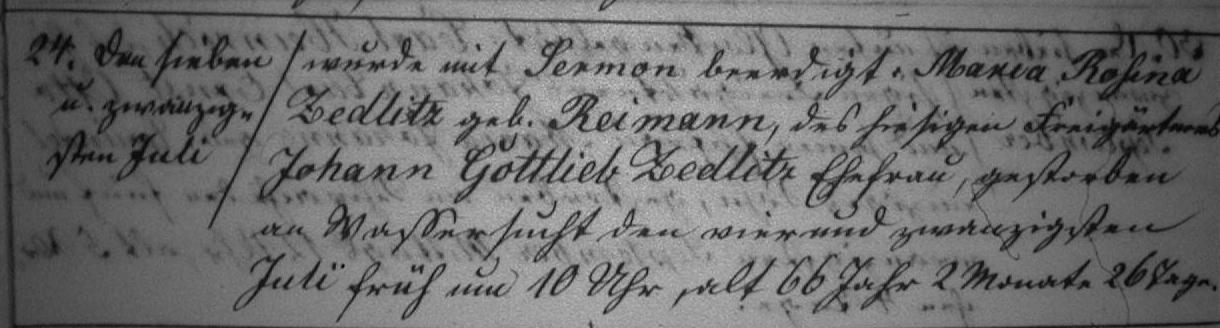 24. Den sieben
u. zwanzig-
sten Juli
wurde mit Sermon beerdigt. Maria Rosina
Zedlitz geb. Reimann, des hiesigen Freigärtners
Johann Gottlieb Zedlitz Ehefrau, gestorben
an Wassersucht den vierund zwanzigsten
Juli früh um 10 Uhr, alt 66 Jahr 2 Monate 26 Tage.